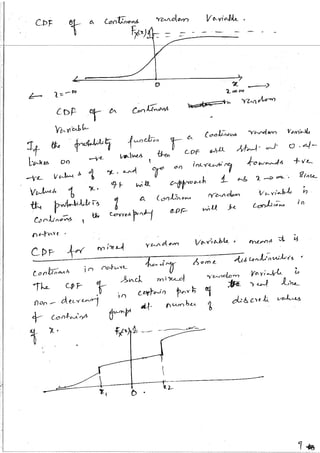 CDF of a Continous random Variable.
Fx(x) 1
0 x
x=-∞ x=∞
CDF of a Continous random
Variable
If the probability function of a Continous random Variable
takes on -ve values, then CDF will start at 0 at
-ve values of x. and go on increasing towards +ve
Values of x. It will approach 1 as x→∞. Since
the probabilities of a Continous random Variable is
Continous, the corresponding CDF will be Continous in
nature.
CDF for mixed random Variable. means it is
Continous in nature having some discontinuities.
The CDF of such mixed random Variable is
non-decreasing in certain parts of the real line
& contains jumps at number of discrete values
of x.
Fx(x) 1
x1 0 x2
9